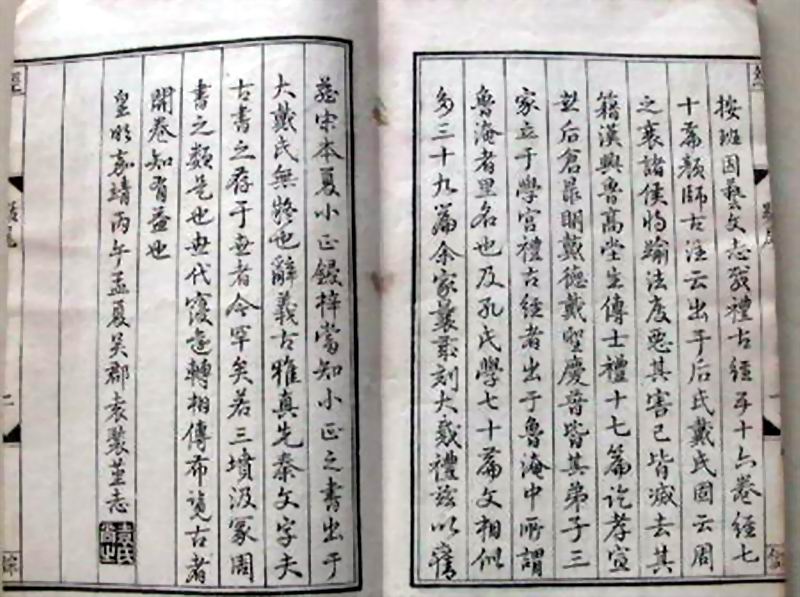 按班固藝文志戴禮古經五十六卷經七
十篇顏師古注云出于后氏戴氏固云周
之衰諸侯將踰法度惡其害己皆滅去其
籍漢興魯高堂生傳士禮十七篇訖孝宣
世后倉最明戴德戴聖慶普皆其弟子三
家立于學官禮古經者出于魯淹中所謂
魯淹者里名也及孔氏學七十篇文相似
多三十九篇余家嘗刻大戴禮茲以舊
蔵宋本夏小正鋟梓當知小正之書出于
大戴氏無疑也辭義古雅真先秦文字夫
古書之存于世者今罕矣若三墳汲冢周
書之類是也世代寖遠轉相傳布覽古者
開卷知有益也
皇明嘉靖丙午孟夏吳郡袁褧堇志
袁氏尚之